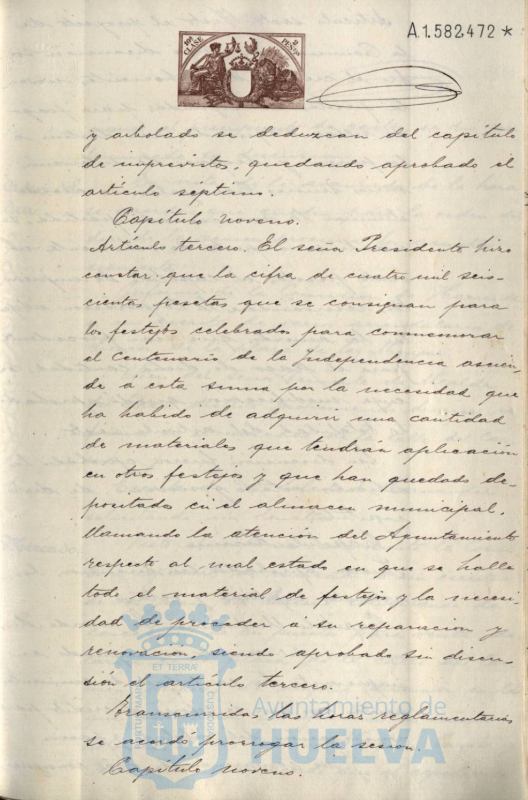 A.1.582,472 *
10ª CLASE
2 PESETAS
y arbolado se deduzcan del capítulo
de imprevistos, quedando aprobado el
artículo séptimo.
Capítulo noveno.
Artículo tercero. El señor Presidente hizo
constar que la cifra de cuatro mil seis-
cientas pesetas que se consignan para
los festejos celebrados para conmemorar
el Centenario de la Independencia ascien-
de á esta suma por la necesidad que
ha habido de adquirir una cantidad
de materiales que tendrán aplicación
en otros festejos y que han quedado de-
positados en el almacen municipal,
llamando la atención del Ayuntamiento
respecto al mal estado en que se halla
todo el material de festejos y la necesi-
dad de proceder á su reparacion y
renovacion, siendo aprobado sin discu-
sión el artículo tercero.
Transcurridas las horas reglamentarias
se acordó prorrogar la sesión.
Capítulo noveno.
ET TERRA
Ayuntamiento de
HUELVA